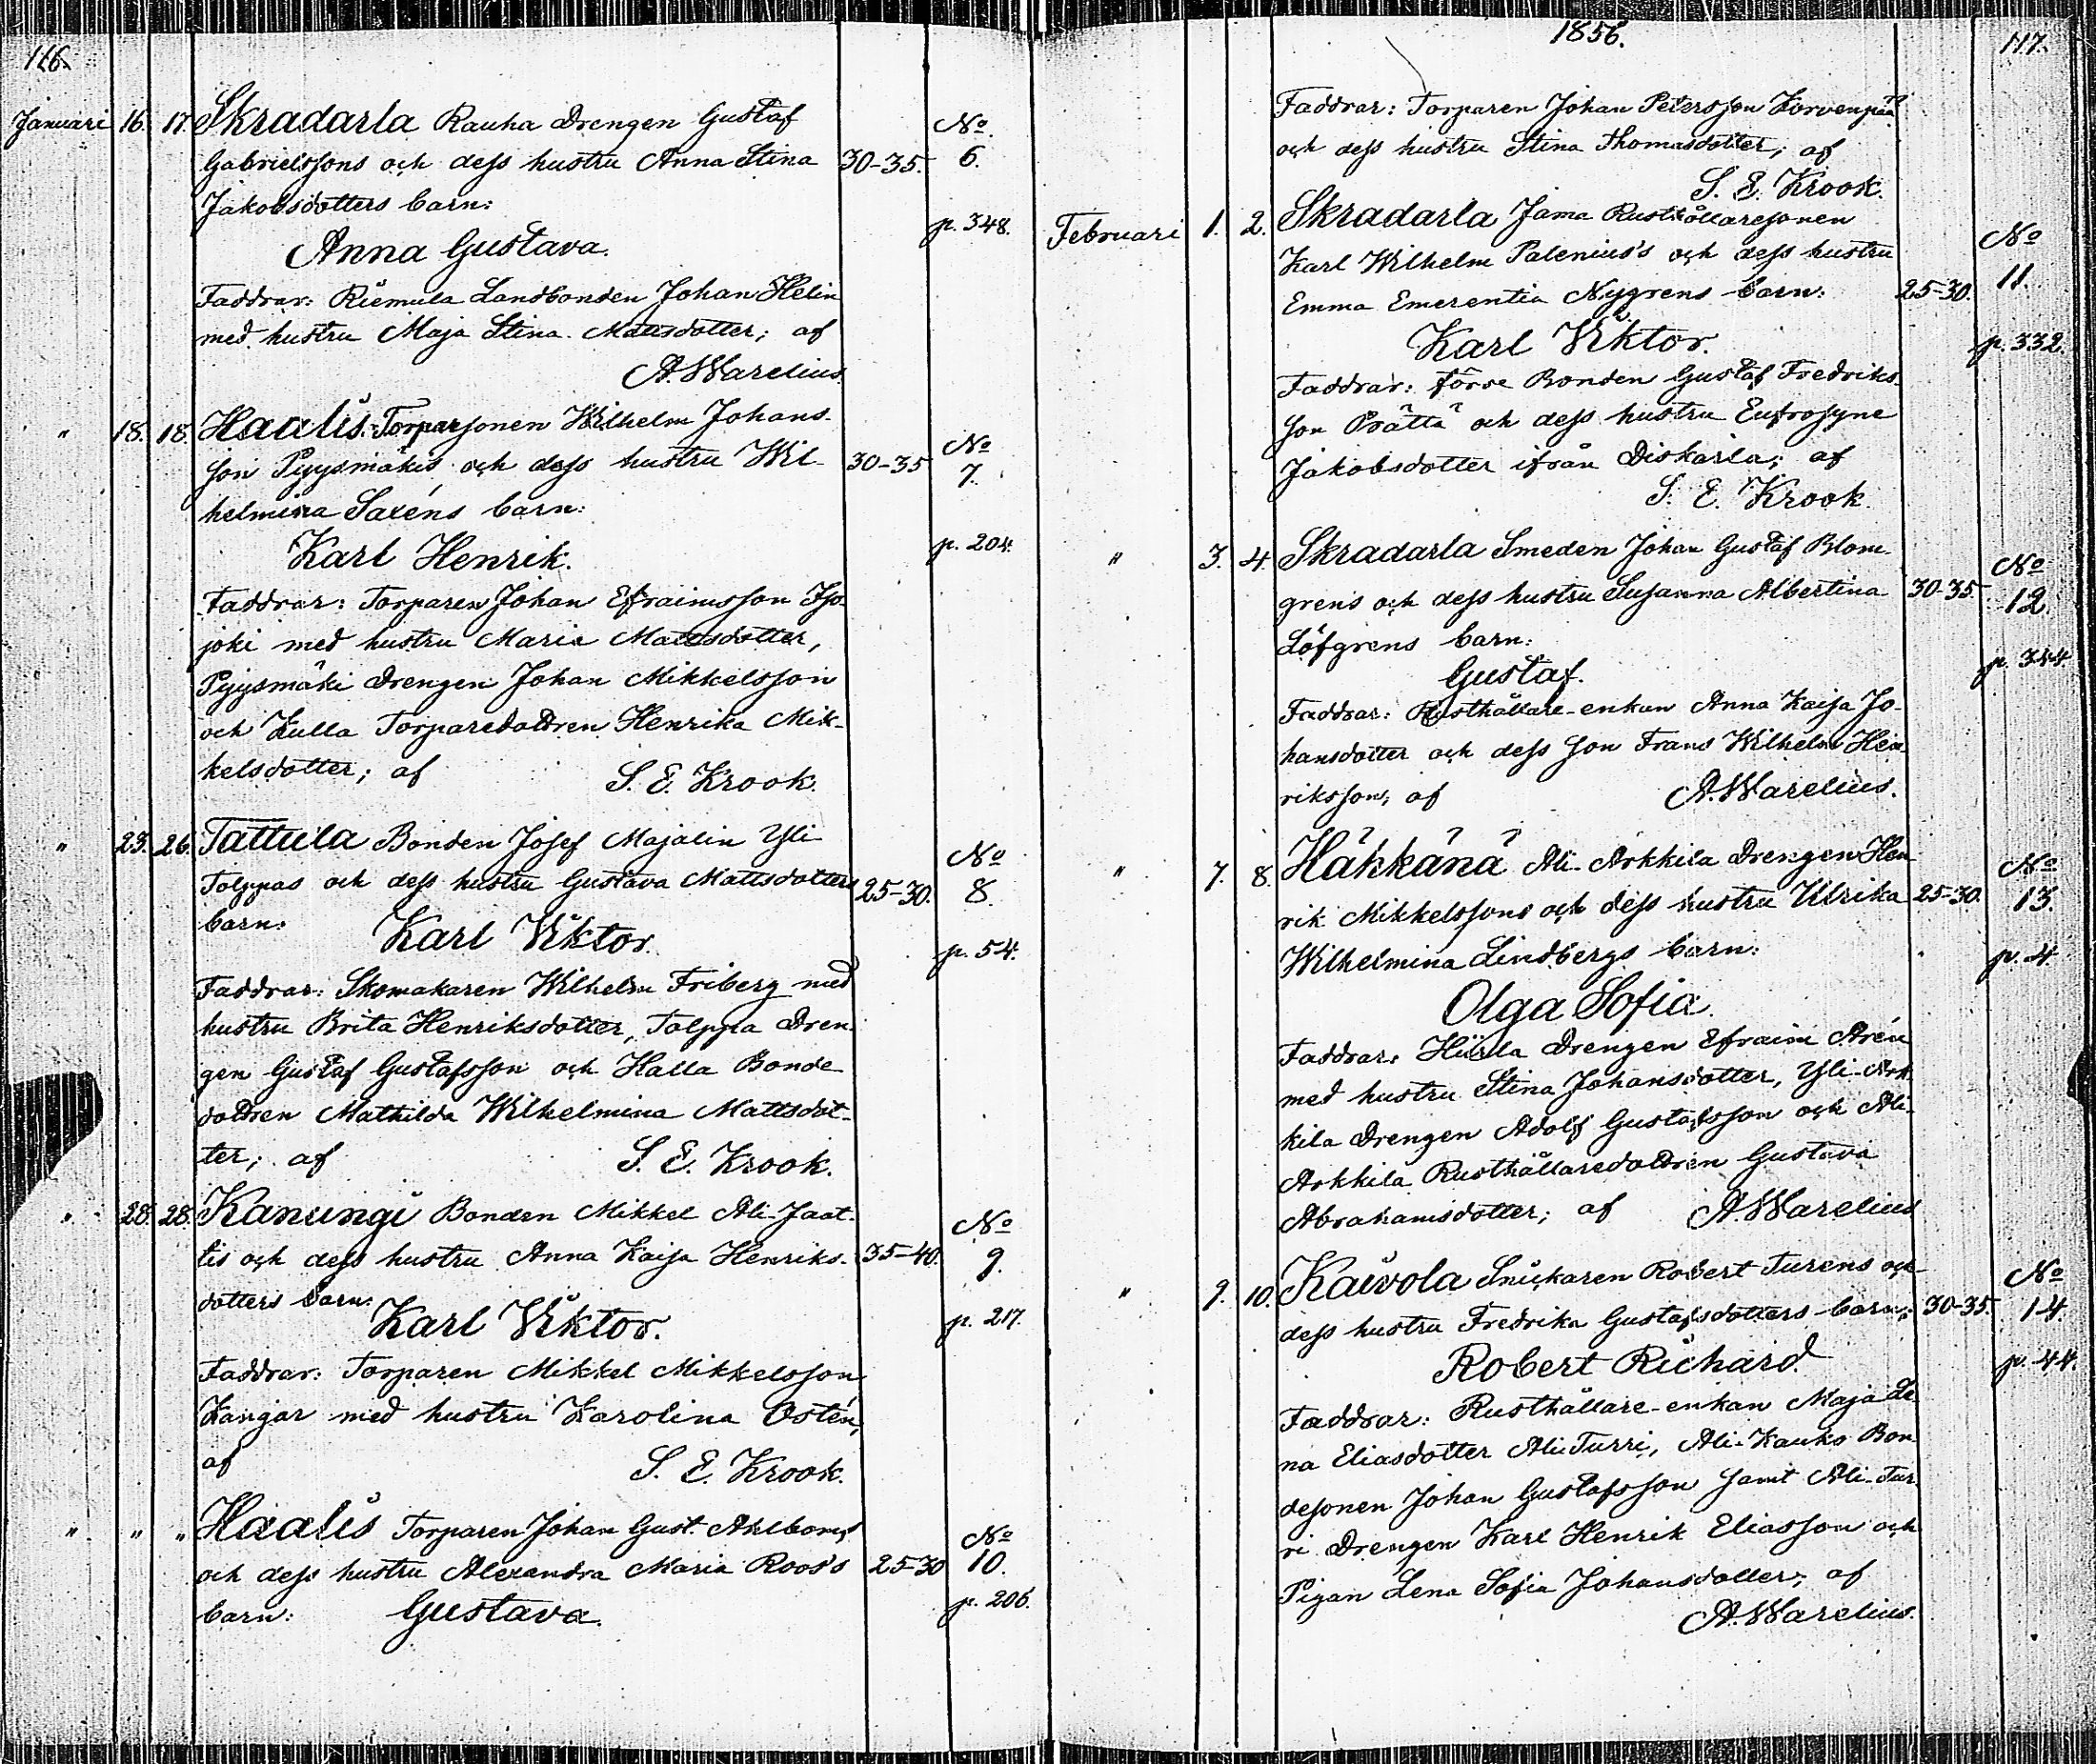 116.
Januari 16. 17. Skradarla Rauha Drengen Gustaf No.
Gabrielssons och dess hustru Anna Stina 30-35. 6.
Jakobsdotters barn:
Anna Gustava. p. 348.
Faddrar: Riemula Landbonden Johan Helin
med hustru Maja Stina Mattsdotter; af
A. Warelius.
" 18. 18. Haalis Torparsonen Wilhelm Johans-
son Pyysmäkis och dess hustru Wil- 30-35 No 7.
helmina Saxéns barn:
Karl Henrik. p. 204.
Faddrar: Torparen Johan Efraimsson Iso-
joki med hustru Maria Mattsdotter,
Pyysmäki Drengen Johan Mikkelsson
och Kulla Torparedottren Henrika Mik-
kelsdotter; af S. E. Krook.
" 23. 26. Tattula Bonden Josef Majalin Yli No
Tolppas och dess hustru Gustava Mattsdotters 25-30. 8.
barn: Karl Viktor. p. 54.
Faddrar: Skomakaren Wilhelm Friberg med
hustru Brita Henriksdotter, Tolppa Dren-
gen Gustaf Gustafsson och Halla Bonde-
dottren Mathilda Wilhelmina Mattsdot-
ter; af S. E. Krook.
" 28. 28. Kanungi Bonden Mikkel Ali-Jaat- No
tis och dess hustru Anna Kaisa Henriks- 35-40. 9.
dotters barn:
Karl Viktor. p. 217.
Faddrar: Torparen Mikkel Mikkelsson
Kangar med hustru Karolina Östén,
af S. E. Krook.
" " " Haalis Torparen Johan Gust. Ahlboms No
och dess hustru Alexandra Maria Roos's 25-30 10.
barn: Gustava. p. 206.
1856. 117.
Faddrar: Torparen Johan Petersson Korvenpää
och dess hustru Stina Thomasdotter; af
S. E. Krook.
Februari 1. 2. Skradarla Jama Rusthållaresonen No
Karl Wilhelm Palenius's och dess hustru
Emma Emerentia Nygrens barn: 25-30. 11.
Karl Viktor. p. 332.
Faddrar: förre Bonden Gustaf Fredriks-
son Prättä och dess hustru Eufrosyne
Jakobsdotter ifrån Diskarla; af
S. E. Krook.
" 3. 4. Skradarla Smeden Johan Gustaf Blom- No
grens och dess hustru Susanna Albertina 30-35. 12.
Löfgrens barn:
Gustaf. p. 344
Faddrar: Rusthållare-enkan Anna Kaisa Jo-
hansdotter och dess son Frans Wilhelm Hen-
riksson; af A. Warelius.
" 7. 8. Häkkänä Ali-Arkkila Drengen Hen- No
rik Mikkelssons och dess hustru Ulrika 25-30. 13.
Wilhelmina Lindbergs barn: p. 4
Olga Sofia.
Faddrar: Hiirla Drengen Efraim Arén
med hustru Stina Johansdotter, Yli-Ark-
kila Drengen Adolf Gustafsson och Ali-
Arkkila Rusthållaredottren Gustava
Abrahamsdotter; af A. Warelius
" 9. 10. Kaivola Snickaren Robert Turens och No
dess hustru Fredrika Gustafsdotters barn: 30-35. 14.
Robert Richard. p. 44.
Faddrar: Rusthållare-enkan Maja Le-
na Eliasdotter Ali-Turri, Ali-Kauko Bon-
desonen Johan Gustafsson samt Ali-Tur-
ri Drengen Karl Henrik Eliasson och
Pigan Lena Sofia Johansdotter; af
A. Warelius.